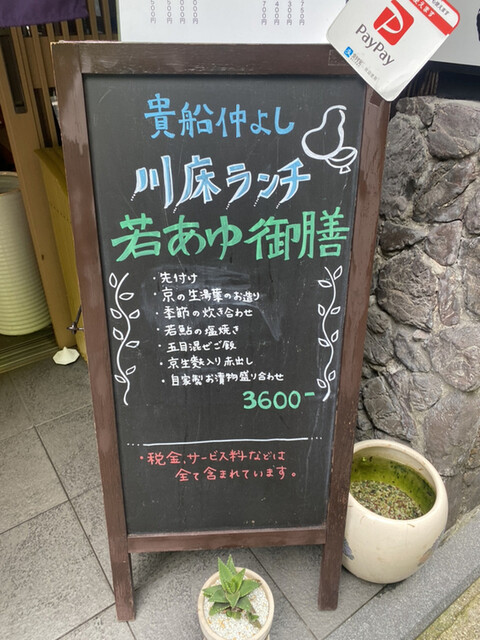 750
400
350
400
500
500
700
PayPay
貴船仲よし
川床ランチ
若あゆ御膳
・先付け
・京の生湯葉のお造り
・季節の炊き合わせ
・若鮎の塩焼き
・五目混ぜご飯
・京生麩入り赤出し
・自家製お漬物盛り合わせ
3600-
・税金、サービス料などは
全て含まれています。